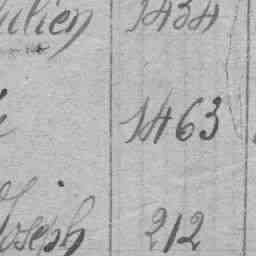 Julien 1434
1463
Joseph 212